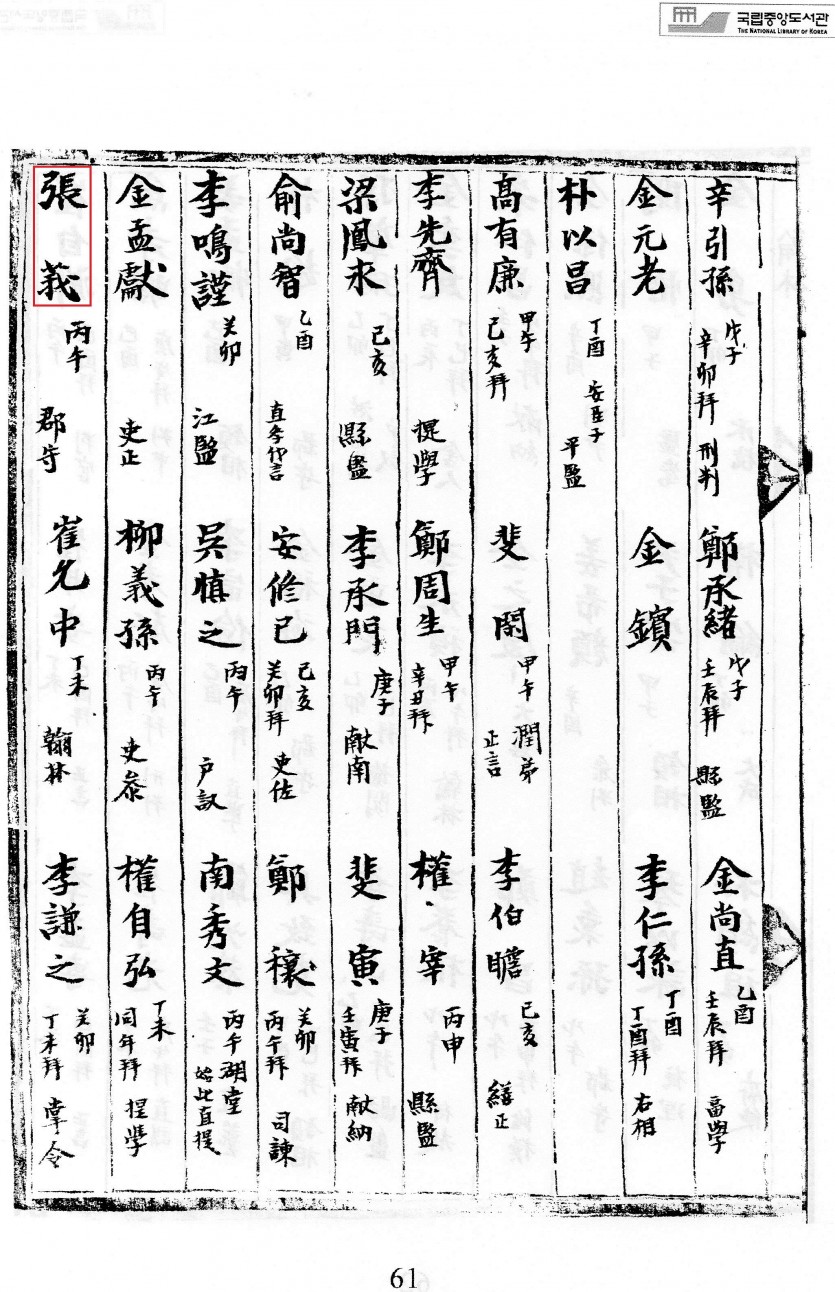 국립중앙도서관
THE NATIONAL LIBRARY OF KOREA
辛引孫 戊子 辛卯拜 刑判 鄭承緖 戊子 壬辰拜 縣監 金尚直 乙酉 壬辰拜 副學
金元老 金鑌 李仁孫 丁酉 丁酉拜 右相
朴以昌 丁酉 安臣子 平監
高有廉 甲午 己亥拜 斐閑 甲午 潤弟 正言 李伯瞻 己亥 繕正
李先齊 提學 鄭周生 甲午 辛丑拜 權宰 丙申 縣監
梁鳳來 己亥 縣監 李承門 庚子 献南 斐寅 庚子 壬寅拜 献納
俞尚智 乙酉 直孝代言 安修己 己亥 癸卯拜 吏佐 鄭穰 癸卯 丙午拜 司諫
李鳴謹 癸卯 江監 吳愼之 丙午 户議 南秀文 丙午 湖堂 始比直提
金孟獻 吏正 柳義孫 丙午 吏叅 權自弘 丁未 同年拜 提學
張莪 丙午 郡守 崔允中 丁未 翰林 李謙之 癸卯 丁未拜 掌令
61